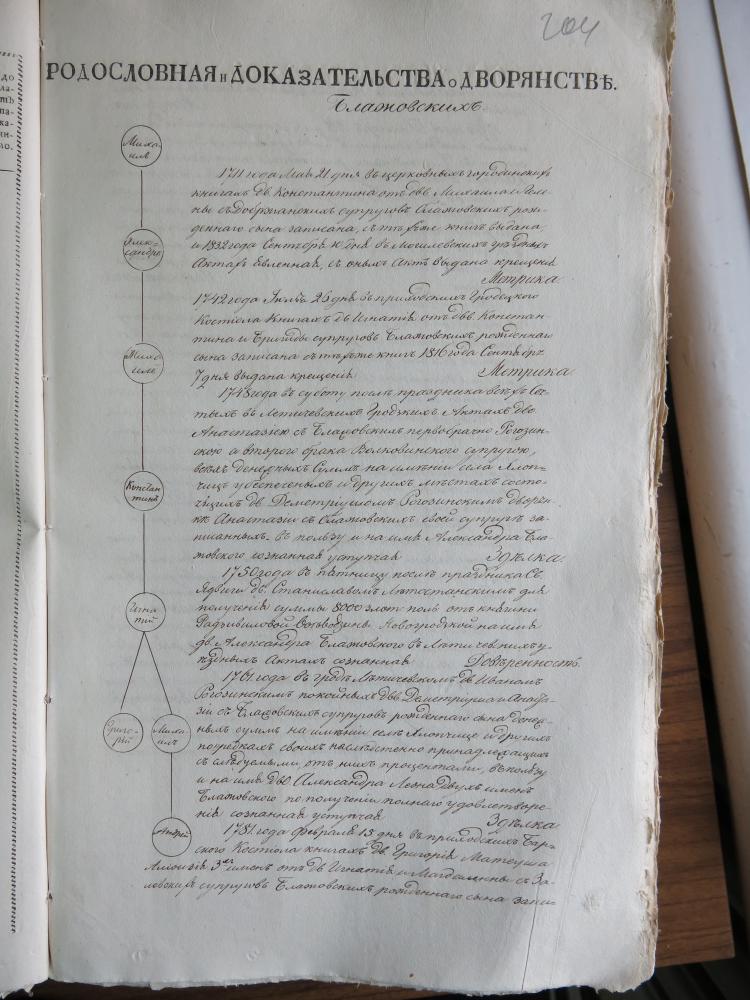 204
до
РОДОСЛОВНАЯ и ДОКАЗАТЕЛЬСТВА о ДВОРЯНСТВѢ.
Блажовскихъ
Миха-
илъ
Алек-
сандръ
Миха-
илъ
Констан-
тинъ
Игна-
тій
Григо-
рій
Миха-
илъ
Андрей
1711 года Мая 21 дня въ церковныхъ
книгахъ дв. Константина отъ двв Михаила и
супруговъ Блажовскихъ рож-
деннаго сына записана, съ тѣхъ же книгъ выдана,
и 1832 года Сентября 10 дня въ Могилевскихъ уѣздныхъ
Актахъ явленная, съ оныхъ Актъ выдана крещенія
Метрика
1742 года Іюля 26 дня въ приходскихъ Гродецкого
Костіола Книгахъ дв Игнатія отъ двв Констан-
тина и Бригиды супруговъ Блажовскихъ рожденнаго
сына записана съ тѣхъ же книгъ 1816 года Сентября
7 дня выдана крещенія Метрика
1748 года въ суботу послѣ праздника всѣхъ Свя-
тыхъ въ Летичевскихъ Гродскихъ Актахъ дво
Анастазіею съ Блажовскихъ первобрачно Рогозин-
скою а второго брака Волковинскою супругою,
всѣхъ денежныхъ Суммъ на имѣніи села Ялоп-
чицъ убеспеченыхъ и другихъ мѣстахъ состо-
ящихъ дв Деметріушомъ Рогозинскимъ дворян-
кѣ Анастазіи съ Блажовскихъ своей супругѣ за-
писанныхъ въ пользу и на имя Александра Бла-
жовского сознанная уступчая Здѣлка.
1750 года въ пятницу послѣ праздника Св.
Ядвиги дв. Станиславомъ для
полученія суммы 8000 злот. поль. отъ княгини
Радзивиловой Воеводзины Новогродской на имя
дв. Александра Блажовского въ Летичевскихъ у-
ѣздныхъ Актахъ сознанная Довѣренность.
1761 года въ гродѣ Летичевскомъ дв Иваномъ
Рогозинскимъ покойныхъ двв Деметріуша и Анаста-
зіи съ Блажовскихъ супруговъ рожденнаго сына денеж-
ныхъ суммъ на имѣніи селѣ Ялопчице и другихъ
своихъ наслѣдственно принадлежащихъ
съ слѣдуемыми отъ нихъ процентами, въ пользу
и на имя дво Александра двухъ именъ
Блажовского по полученіи полнаго удовлетворе-
нія сознанная уступчая Здѣлка
1781 года февраля 13 дня въ приходскихъ Бар-
ского Костіола книгахъ дв. Григорія Матеуша
3хъ именъ отъ дв Игнатія и Магдалены съ За-
супруговъ Блажовскихъ рожденнаго сына запи-